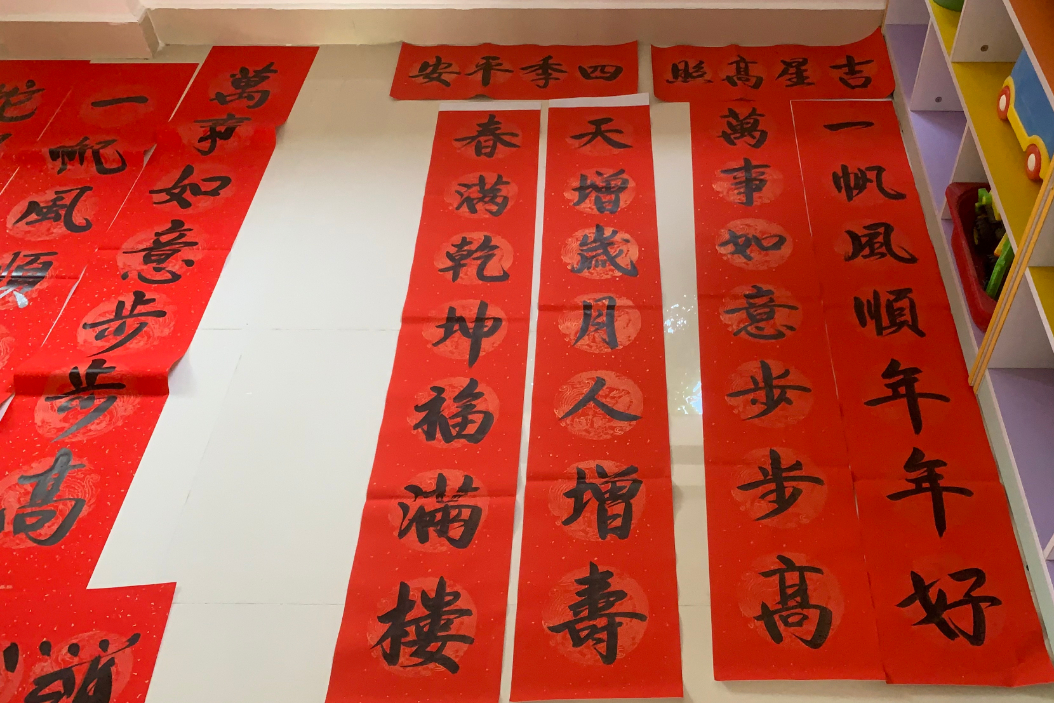 吉星高照
一帆風順年年好
萬事如意步步高
四季平安
天增歲月人增壽
春满乾坤福滿樓
萬事如意步步高
一帆風順